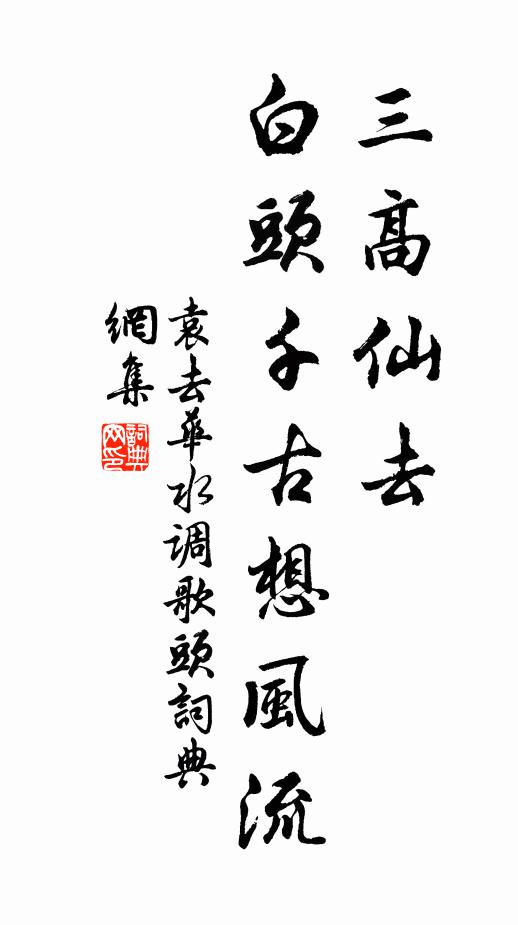 三高仙去
白頭千古想風流
袁去華水调歌頭詞典
網集
詞典網印